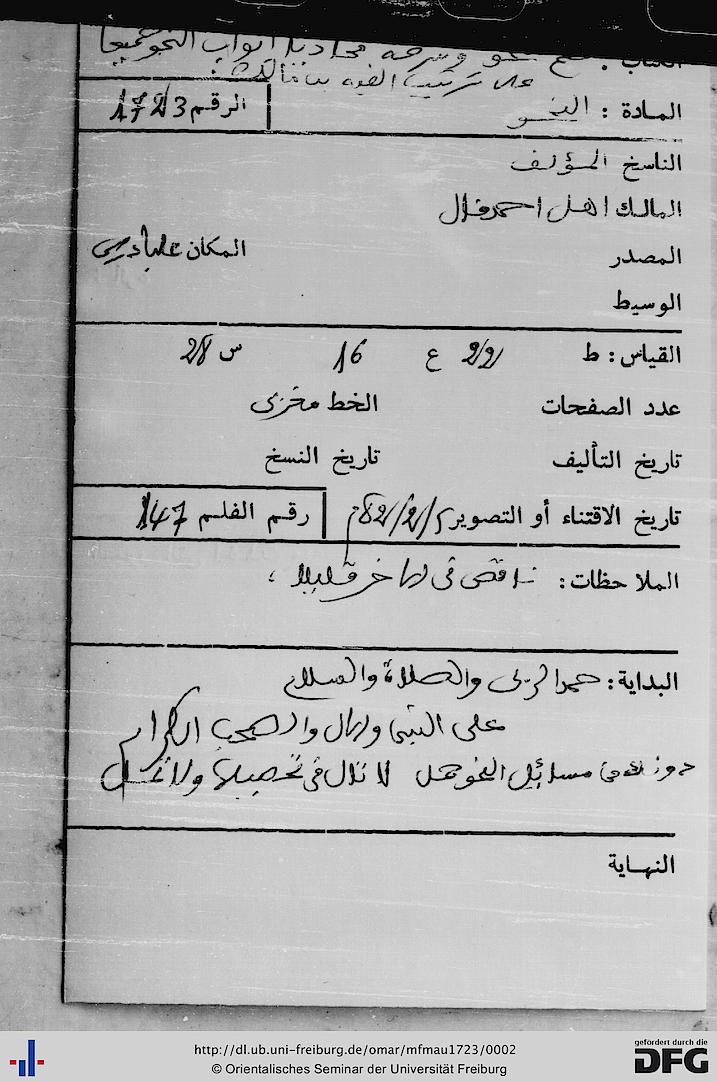 الكتاب : نظم نحو وشرحه محاذيا أبواب النحو جميعا
على ترتيب ألفية بن مالك :
المادة : النحو
الرقم 1723
الناسخ المؤلف
المالك اهل احمد فال
المصدر
المكان علبادرس
الوسيط
القياس : ط 22 ع 16 س 28
عدد الصفحات
الخط مغربى
تاريخ التأليف
تاريخ النسخ
تاريخ الاقتناء أو التصوير
رقم الفلم 147
الملاحظات : ناقص فى الاخر قليلا
البداية : حمدا لربى والصلاة والسلام
على النبى والال والصحب الكرام
دونك من مسائل النحو هل لا تال فى تحصيلها ولا تسل
النهاية
http://dl.ub.uni-freiburg.de/omar/mfmau1723/0002
© Orientalisches Seminar der Universität Freiburg
gefördert durch die
DFG